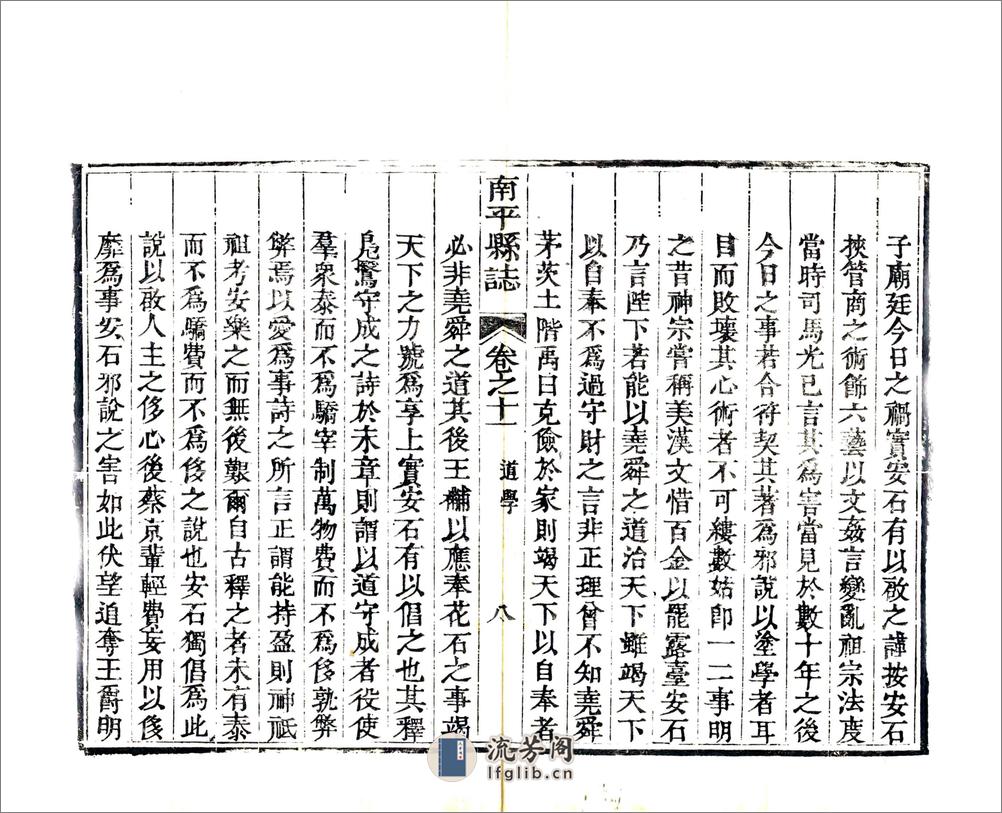 子廟廷今日之禍實安石有以啟之謹按安石
挾管商之術飾六藝以文姦言變亂祖宗法度
當時司馬光已言其爲害當見於數十年之後
今日之事若合符契其著爲邪說以塗學者耳
目而敗壞其心術者不可縷數姑卽一二事明
之昔神宗嘗稱美漢文惜百金以罷露臺安石
乃言陛下若能以堯舜之道治天下雖竭天下
以自奉不爲過守財之言非正理曾不知堯舜
茅茨土階禹曰克儉於家則竭天下以自奉者
南平縣誌 卷之十一 道學 八
必非堯舜之道其後王黼以應奉花石之事竭
天下之力號爲享上實安石有以倡之也其釋
鳧鷖守成之詩於末章則謂以道守成者役使
羣衆泰而不爲驕宰制萬物費而不爲侈孰弊
弊焉以愛爲事詩之所言正謂能持盈則神祇
祖考安樂之而無後艱爾自古釋之者未有泰
而不爲驕費而不爲侈之說也安石獨倡爲此
說以啟人主之侈心後蔡京輩輕費妄用以侈
靡爲事安石邪說之害如此伏望追奪王爵明
流芳阁
lfglib.cn